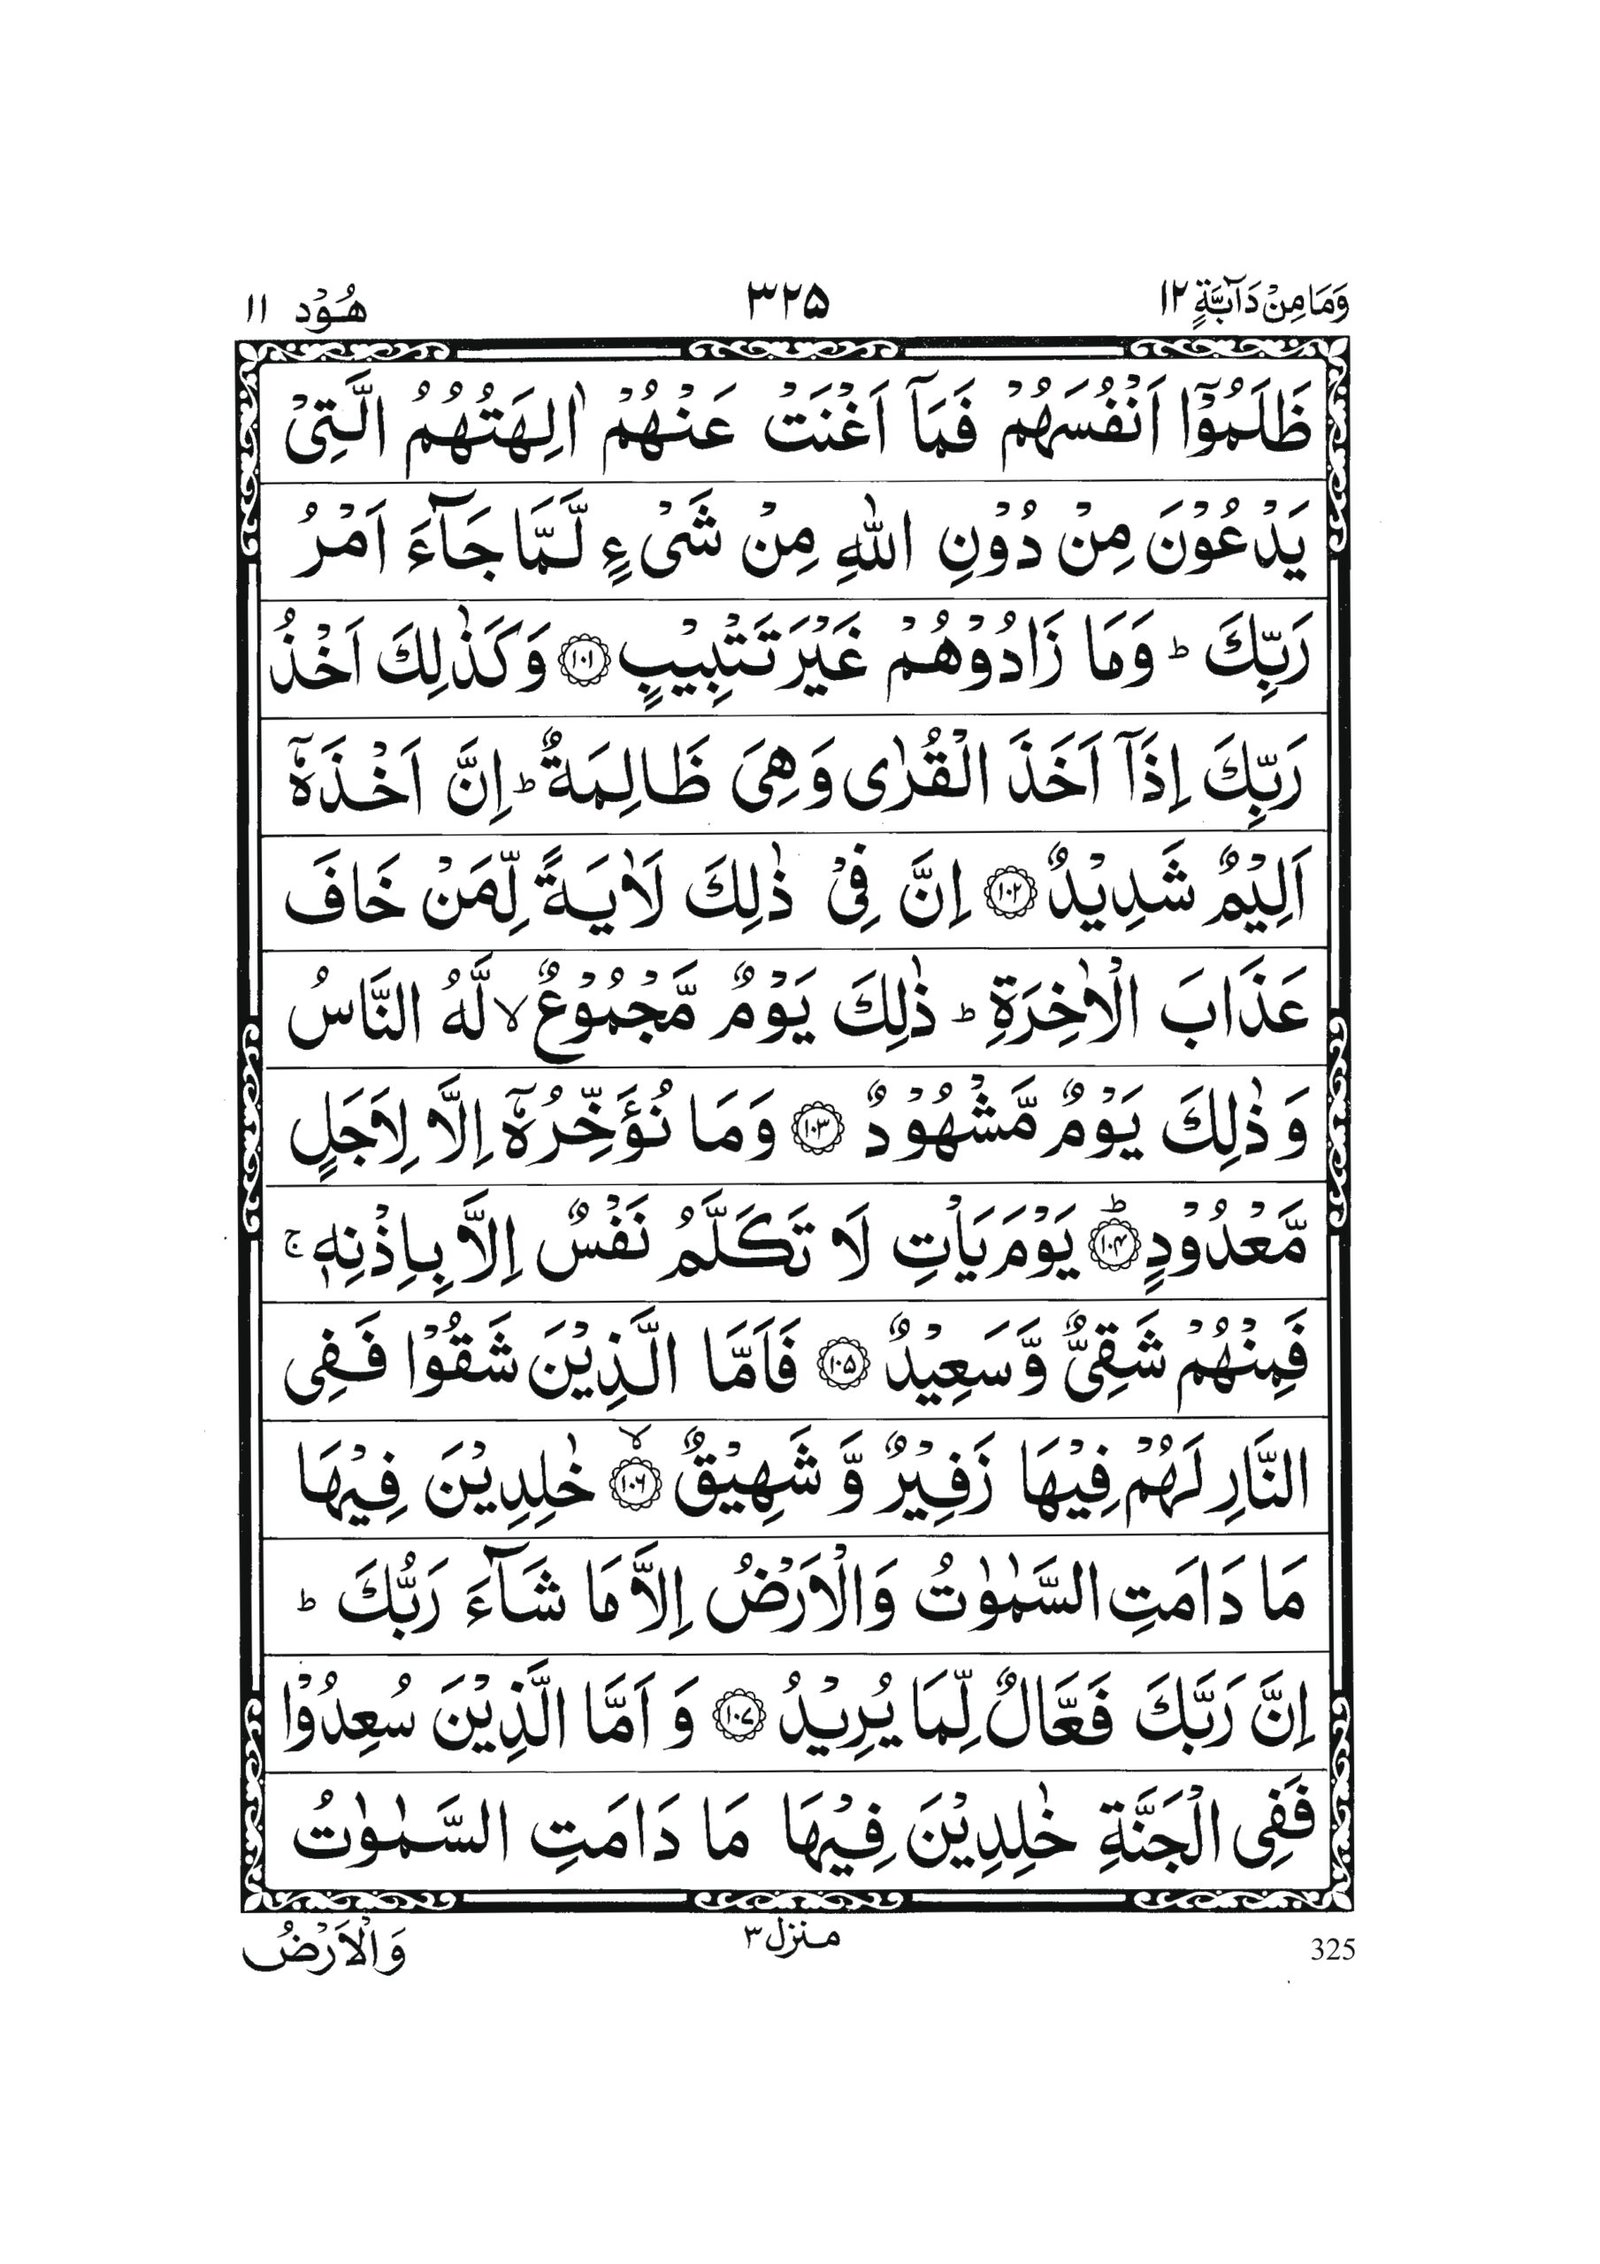 وَمَا مِنْ دَآبَّةٍ ١٢ ٣٢٥ هُوْد ١١
ظَلَمُوْٓا اَنْفُسَهُمْ فَمَآ اَغْنَتْ عَنْهُمْ اٰلِهَتُهُمُ الَّتِیْ
يَدْعُوْنَ مِنْ دُوْنِ اللّٰهِ مِنْ شَیْءٍ لَّمَّا جَآءَ اَمْرُ
رَبِّكَ ؕ وَمَا زَادُوْهُمْ غَيْرَ تَتْبِيْبٍ ﴿۱۰۱﴾ وَكَذٰلِكَ اَخْذُ
رَبِّكَ اِذَآ اَخَذَ الْقُرٰی وَهِیَ ظَالِمَةٌ ؕ اِنَّ اَخْذَهٗٓ
اَلِيْمٌ شَدِيْدٌ ﴿۱۰۲﴾ اِنَّ فِیْ ذٰلِكَ لَاٰيَةً لِّمَنْ خَافَ
عَذَابَ الْاٰخِرَةِ ؕ ذٰلِكَ يَوْمٌ مَّجْمُوْعٌ ۙ لَّهُ النَّاسُ
وَذٰلِكَ يَوْمٌ مَّشْهُوْدٌ ﴿۱۰۳﴾ وَمَا نُؤَخِّرُهٗٓ اِلَّا لِاَجَلٍ
مَّعْدُوْدٍ ﴿۱۰۴﴾ؕ يَوْمَ يَاْتِ لَا تَكَلَّمُ نَفْسٌ اِلَّا بِاِذْنِهٖ ۚ
فَمِنْهُمْ شَقِیٌّ وَّسَعِيْدٌ ﴿۱۰۵﴾ فَاَمَّا الَّذِيْنَ شَقُوْا فَفِی
النَّارِ لَهُمْ فِيْهَا زَفِيْرٌ وَّ شَهِيْقٌ ﴿۱۰۶﴾ۙ خٰلِدِيْنَ فِيْهَا
مَا دَامَتِ السَّمٰوٰتُ وَالْاَرْضُ اِلَّا مَا شَآءَ رَبُّكَ ؕ
اِنَّ رَبَّكَ فَعَّالٌ لِّمَا يُرِيْدُ ﴿۱۰۷﴾ وَ اَمَّا الَّذِيْنَ سُعِدُوْا
فَفِی الْجَنَّةِ خٰلِدِيْنَ فِيْهَا مَا دَامَتِ السَّمٰوٰتُ
325 منزل ٣ وَالْاَرْضُ